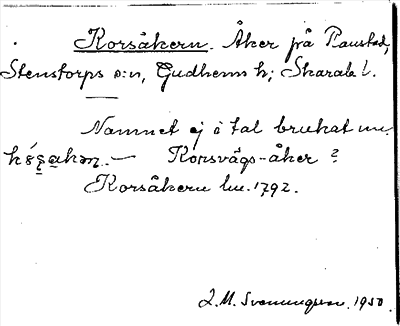 Korsåkern. Åker på Raustad,
Stenstorps s:n, Gudhems h; Skarab. l.
Namnet ej i tal brukat nu.
Korsvägs-åker?
Korsåkern lm. 1792.
1950.